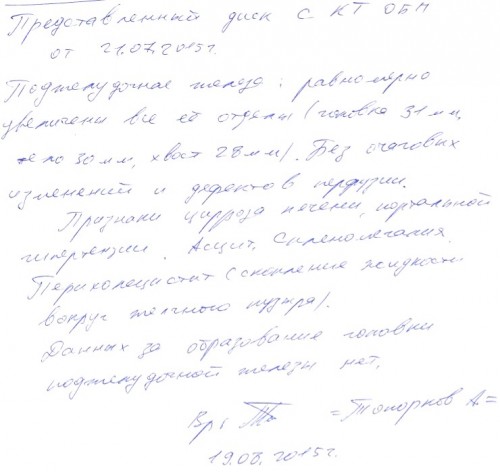 Представленный диск с КТ ОБП
от 21.07.2015г.
Поджелудочная железа: равномерно
увеличены все её отделы (головка 31 мм,
тело 30 мм, хвост 28 мм). Без очаговых
изменений и дефектов перфузии.
Признаки цирроза печени, портальной
гипертензии. Асцит. Спленомегалия.
Перихолецистит (скопление жидкости
вокруг желчного пузыря).
Данных за образование головки
поджелудочной железы нет.
Вр: =Топорков А.=
19.08.2015г.